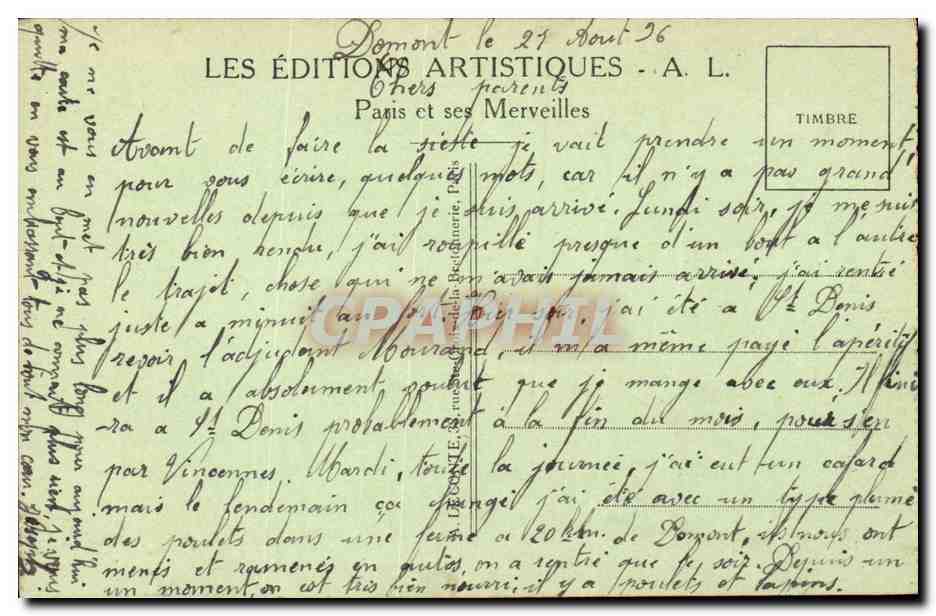 Domont le 21 Aout 36
LES ÉDITIONS ARTISTIQUES - A. L.
Chers parents
Paris et ses Merveilles
TIMBRE
Avant de faire la sieste je vait prendre un moment
pour vous écrire, quelques mots, car il n'y a pas grand
nouvelles depuis que je suis arrivé. Lundi soir, je me suis
très bien rendu, j'ai roupillé presque d'un bout a l'autre
le trajet, chose qui ne m'avais jamais arrivé, j'ai rentré
juste a minuit au fort. Hier soir, j'ai été a St Denis
revoir l'adjudant Mourand, il m'a même payé l'apéritif
et il a absolument voulut que je mange avec eux. Il fini
ra a St Denis probablement à la fin du mois, pour s'en
par Vincennes. Mardi, toute la journée, j'ai eut un cafard
mais le lendemain ça changé j'ai été avec un type plumé
des poulets dans une ferme a 20 km. de Domont, ils nous ont
menés et ramenés en autos, on a rentré que le soir. Depuis un
un moment, on est très bien nourri, il y a poulets et lapins.
Je ne vous en met pas plus long pour aujourd'hui
ma carte est au bout et je ne plus rien. Je vous
quitte en vous embrassant tous de tout mon cœur.
A. LECONTE, rue Ste-Croix-de-la-Bretonnerie, Paris
CPAPHIL